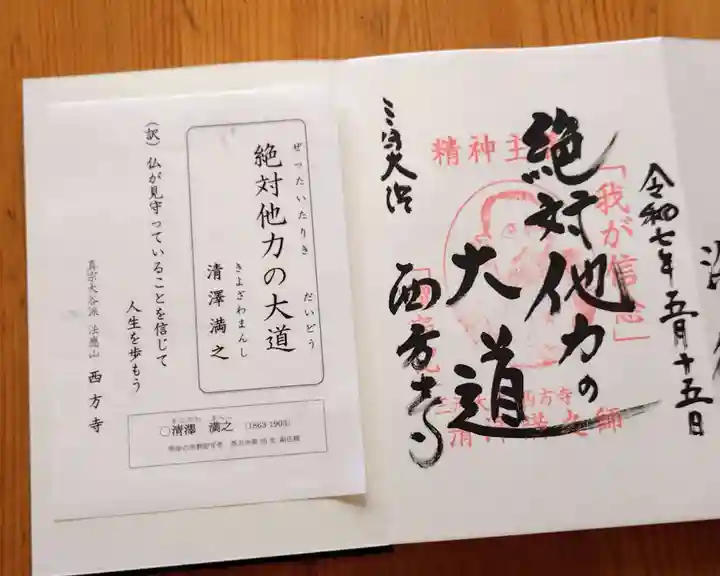 令和七年五月十五日
「我が信念」
絶対他力の
大道
精神主
西方寺
ぜったいたりき
だいどう
絶対他力の大道
きよざわまんし
清澤満之
(訳)仏が見守っていることを信じて
人生を歩もう
真宗大谷派 法應山 西方寺
○清澤 満之 (1863-1903)